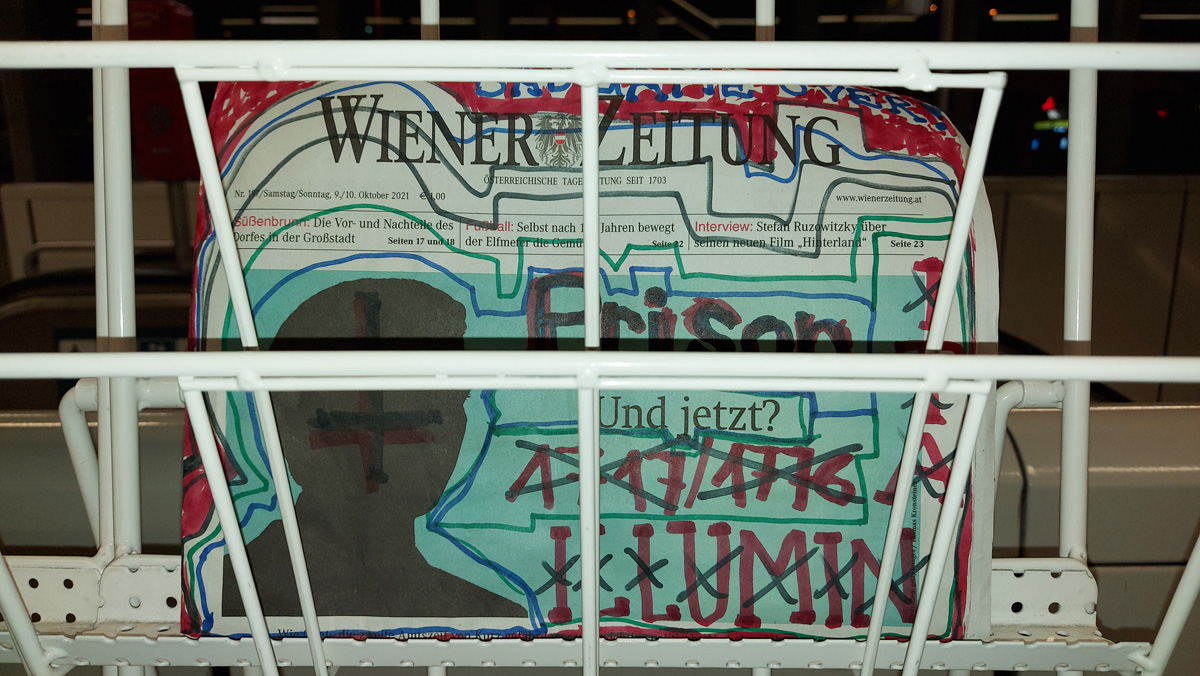 WIENER ZEITUNG
ÖSTERREICHISCHE TAGESZEITUNG SEIT 1703
Samstag/Sonntag, 9./10. Oktober 2021 € 1,00
www.wienerzeitung.at
Süßenbrunn: Die Vor- und Nachteile des
Dorfes in der Großstadt Seiten 17 und 18
Fußball: Selbst nach Jahren bewegt
der Elfmeter die Seite 22
Interview: Stefan Ruzowitzky über
seinen neuen Film „Hinterland“ Seite 23
Und jetzt?
1717/1776
ILLUMIN